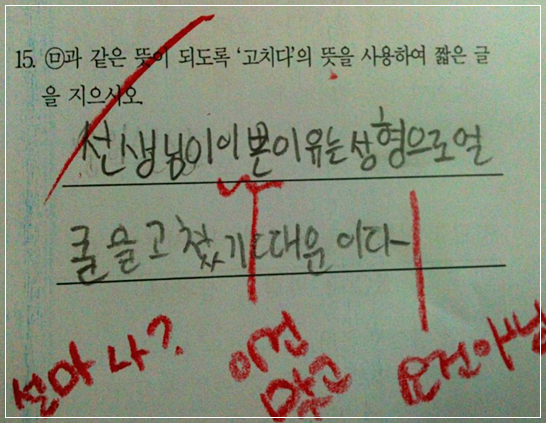 15. ㉤과 같은 뜻이 되도록 '고치다'의 뜻을 사용하여 짧은 글
을 지으시오
선생님이 이쁜이유는 성형으로 얼
굴을 고쳤기때문이다
설마 나?
이건
맞고
요건 아님